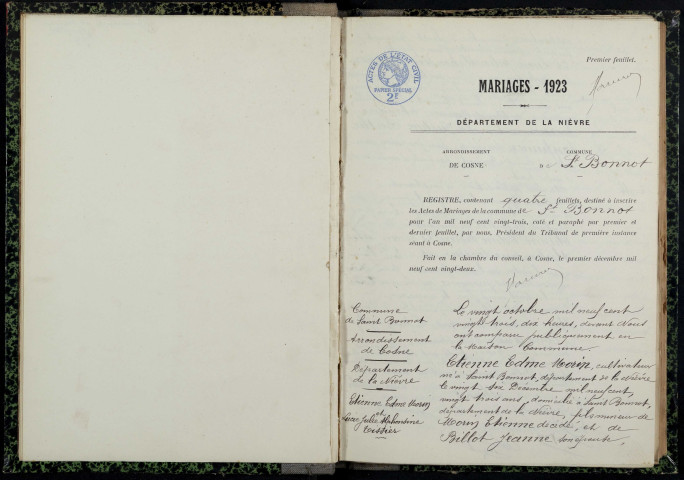 Premier feuillet.
ACTES DE L'ETAT CIVIL
PAPIER SPECIAL
2F
MARIAGES - 1923
DÉPARTEMENT DE LA NIÈVRE
ARRONDISSEMENT
DE COSNE
COMMUNE
D St Bonnot
REGISTRE, contenant quatre feuillets, destiné à inscrire
les Actes de Mariages de la commune de St Bonnot
pour l'an mil neuf cent vingt-trois, coté et paraphé par premier et
dernier feuillet, par nous, Président du Tribunal de première instance
séant à Cosne.
Fait en la chambre du conseil, à Cosne, le premier décembre mil
neuf cent vingt-deux.
Commune
de Saint Bonnot
Arrondissement
de Cosne
Département
de la Nièvre
Etienne Edme Morin
et
Lucie Julie
Tissier
Le vingt octobre mil neuf cent
vingt trois, dix heures, devant Nous
ont comparu publiquement en
la Maison Commune.
Etienne Edme Morin, cultivateur
né à Saint Bonnot, département de la Nièvre
le vingt six Décembre mil neuf cent
trois ans, domicilié à Saint Bonnot,
département de la Nièvre, fils mineur de
Morin Etienne décédé, et de
Billot Jeanne son épouse,